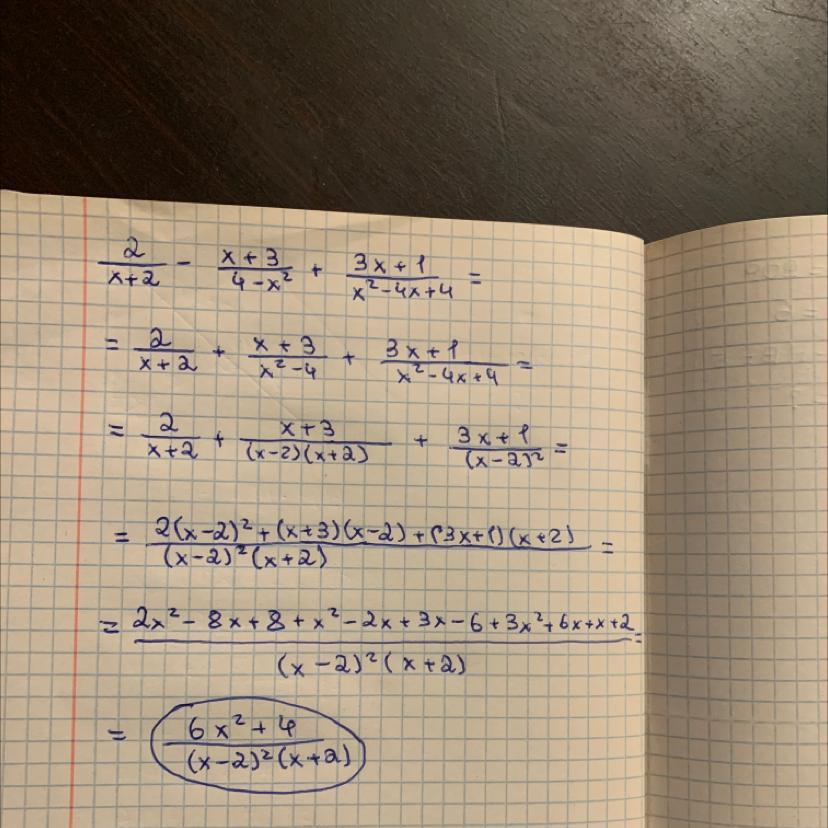 2/(x+2) - (x+3)/(4-x²) + (3x+1)/(x²-4x+4) =
= 2/(x+2) + (x+3)/(x²-4) + (3x+1)/(x²-4x+4) =
= 2/(x+2) + (x+3)/((x-2)(x+2)) + (3x+1)/(x-2)² =
= (2(x-2)²+(x+3)(x-2)+(3x+1)(x+2))/((x-2)²(x+2)) =
= (2x²-8x+8+x²-2x+3x-6+3x²+6x+x+2)/((x-2)²(x+2)) =
= (6x²+4)/((x-2)²(x+2))